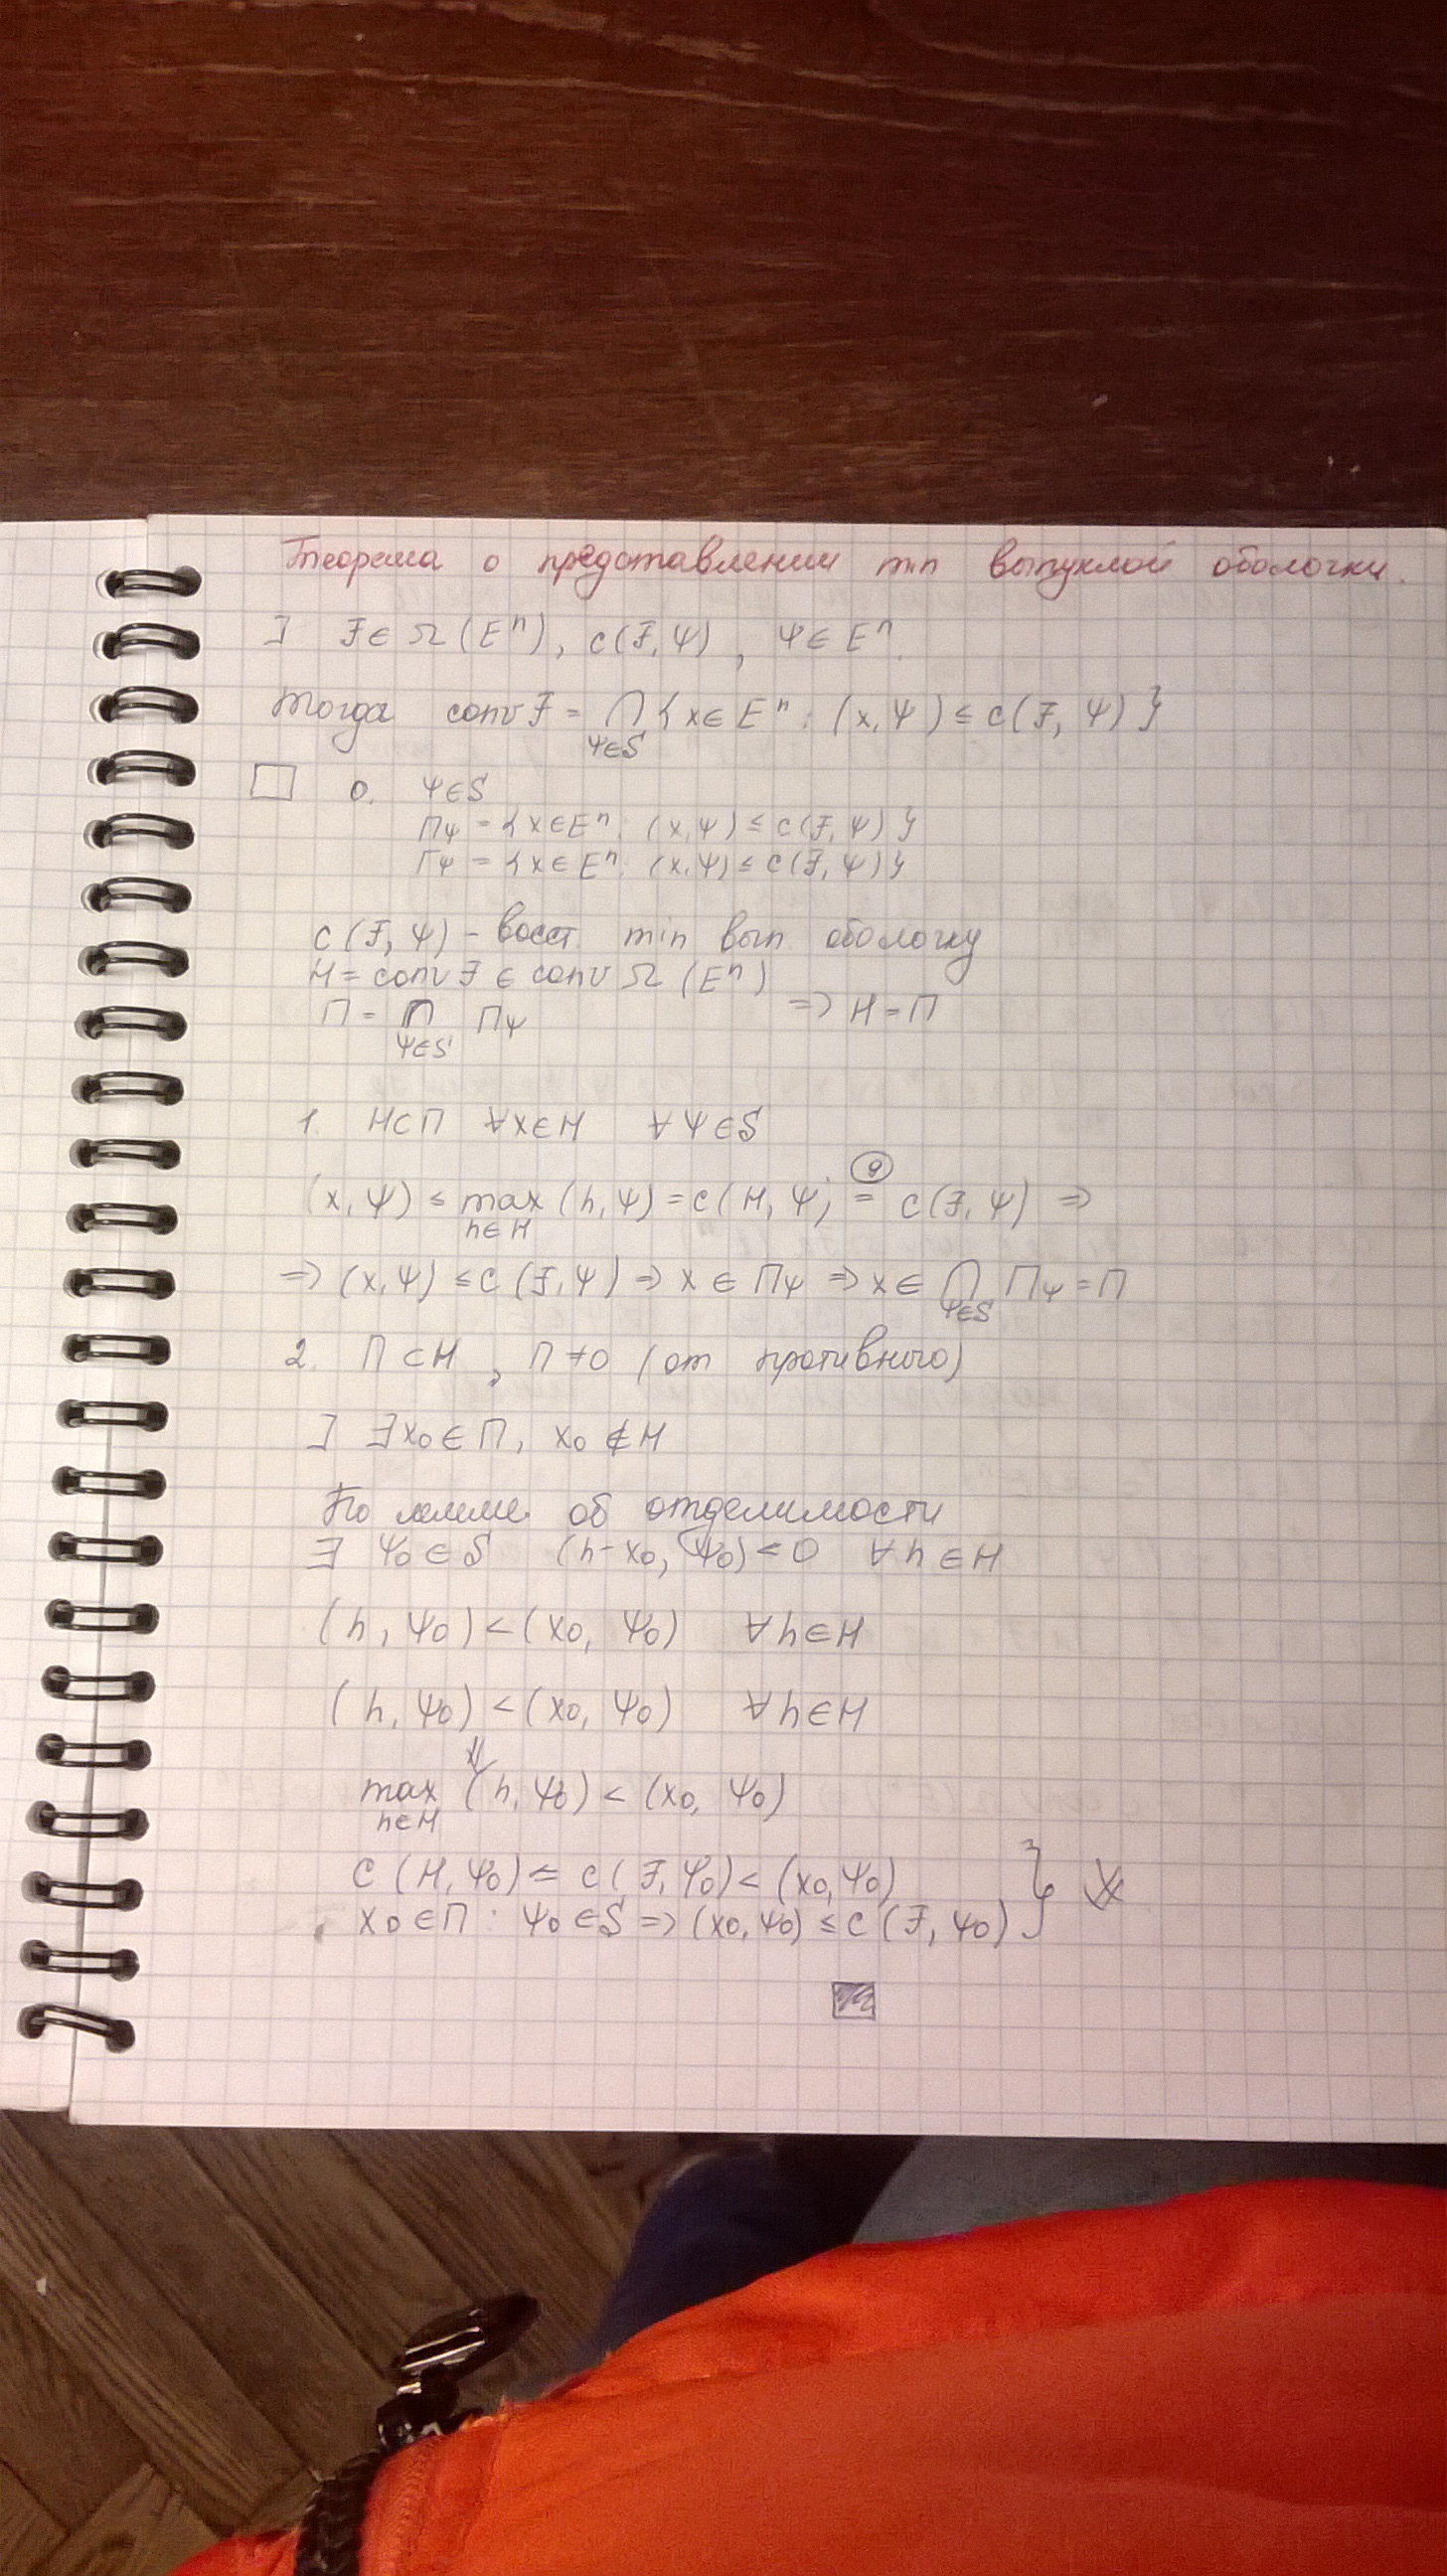 Теорема о представлении min выпуклой оболочки.
∃ F ∈ Ω(Eⁿ), c(F, Ψ), Ψ ∈ Eⁿ.
Тогда conv F = ⋂_{Ψ∈S} {x ∈ Eⁿ : (x, Ψ) ≤ c(F, Ψ)}
□ 0. Ψ∈S
П_Ψ = {x∈Eⁿ: (x, Ψ) ≤ c(F, Ψ)}
Г_Ψ = {x∈Eⁿ: (x, Ψ) ≤ c(F, Ψ)}
c(F, Ψ) – восст. min вып. оболочку
H = conv F ∈ conv Ω(Eⁿ)
П = ⋂_{Ψ∈S} П_Ψ ⇒ H = П
1. H⊂П ∀x∈H ∀Ψ∈S
(x, Ψ) ≤ max_{h∈H} (h, Ψ) = c(H, Ψ) =^{⑨} c(F, Ψ) ⇒
⇒ (x, Ψ) ≤ c(F, Ψ) ⇒ x ∈ П_Ψ ⇒ x ∈ ⋂_{Ψ∈S} П_Ψ = П
2. П⊂H, П≠0 (от противного)
∃ ∃x₀∈П, x₀∉H
По лемме об отделимости
∃ Ψ₀∈S (h-x₀, Ψ₀)<0 ∀h∈H
(h, Ψ₀) < (x₀, Ψ₀) ∀h∈H
(h, Ψ₀) < (x₀, Ψ₀) ∀h∈H
⇓
max_{h∈H} (h, Ψ₀) < (x₀, Ψ₀)
c(H, Ψ₀) = c(F, Ψ₀) < (x₀, Ψ₀)
x₀∈П : Ψ₀∈S ⇒ (x₀, Ψ₀) ≤ c(F, Ψ₀) }